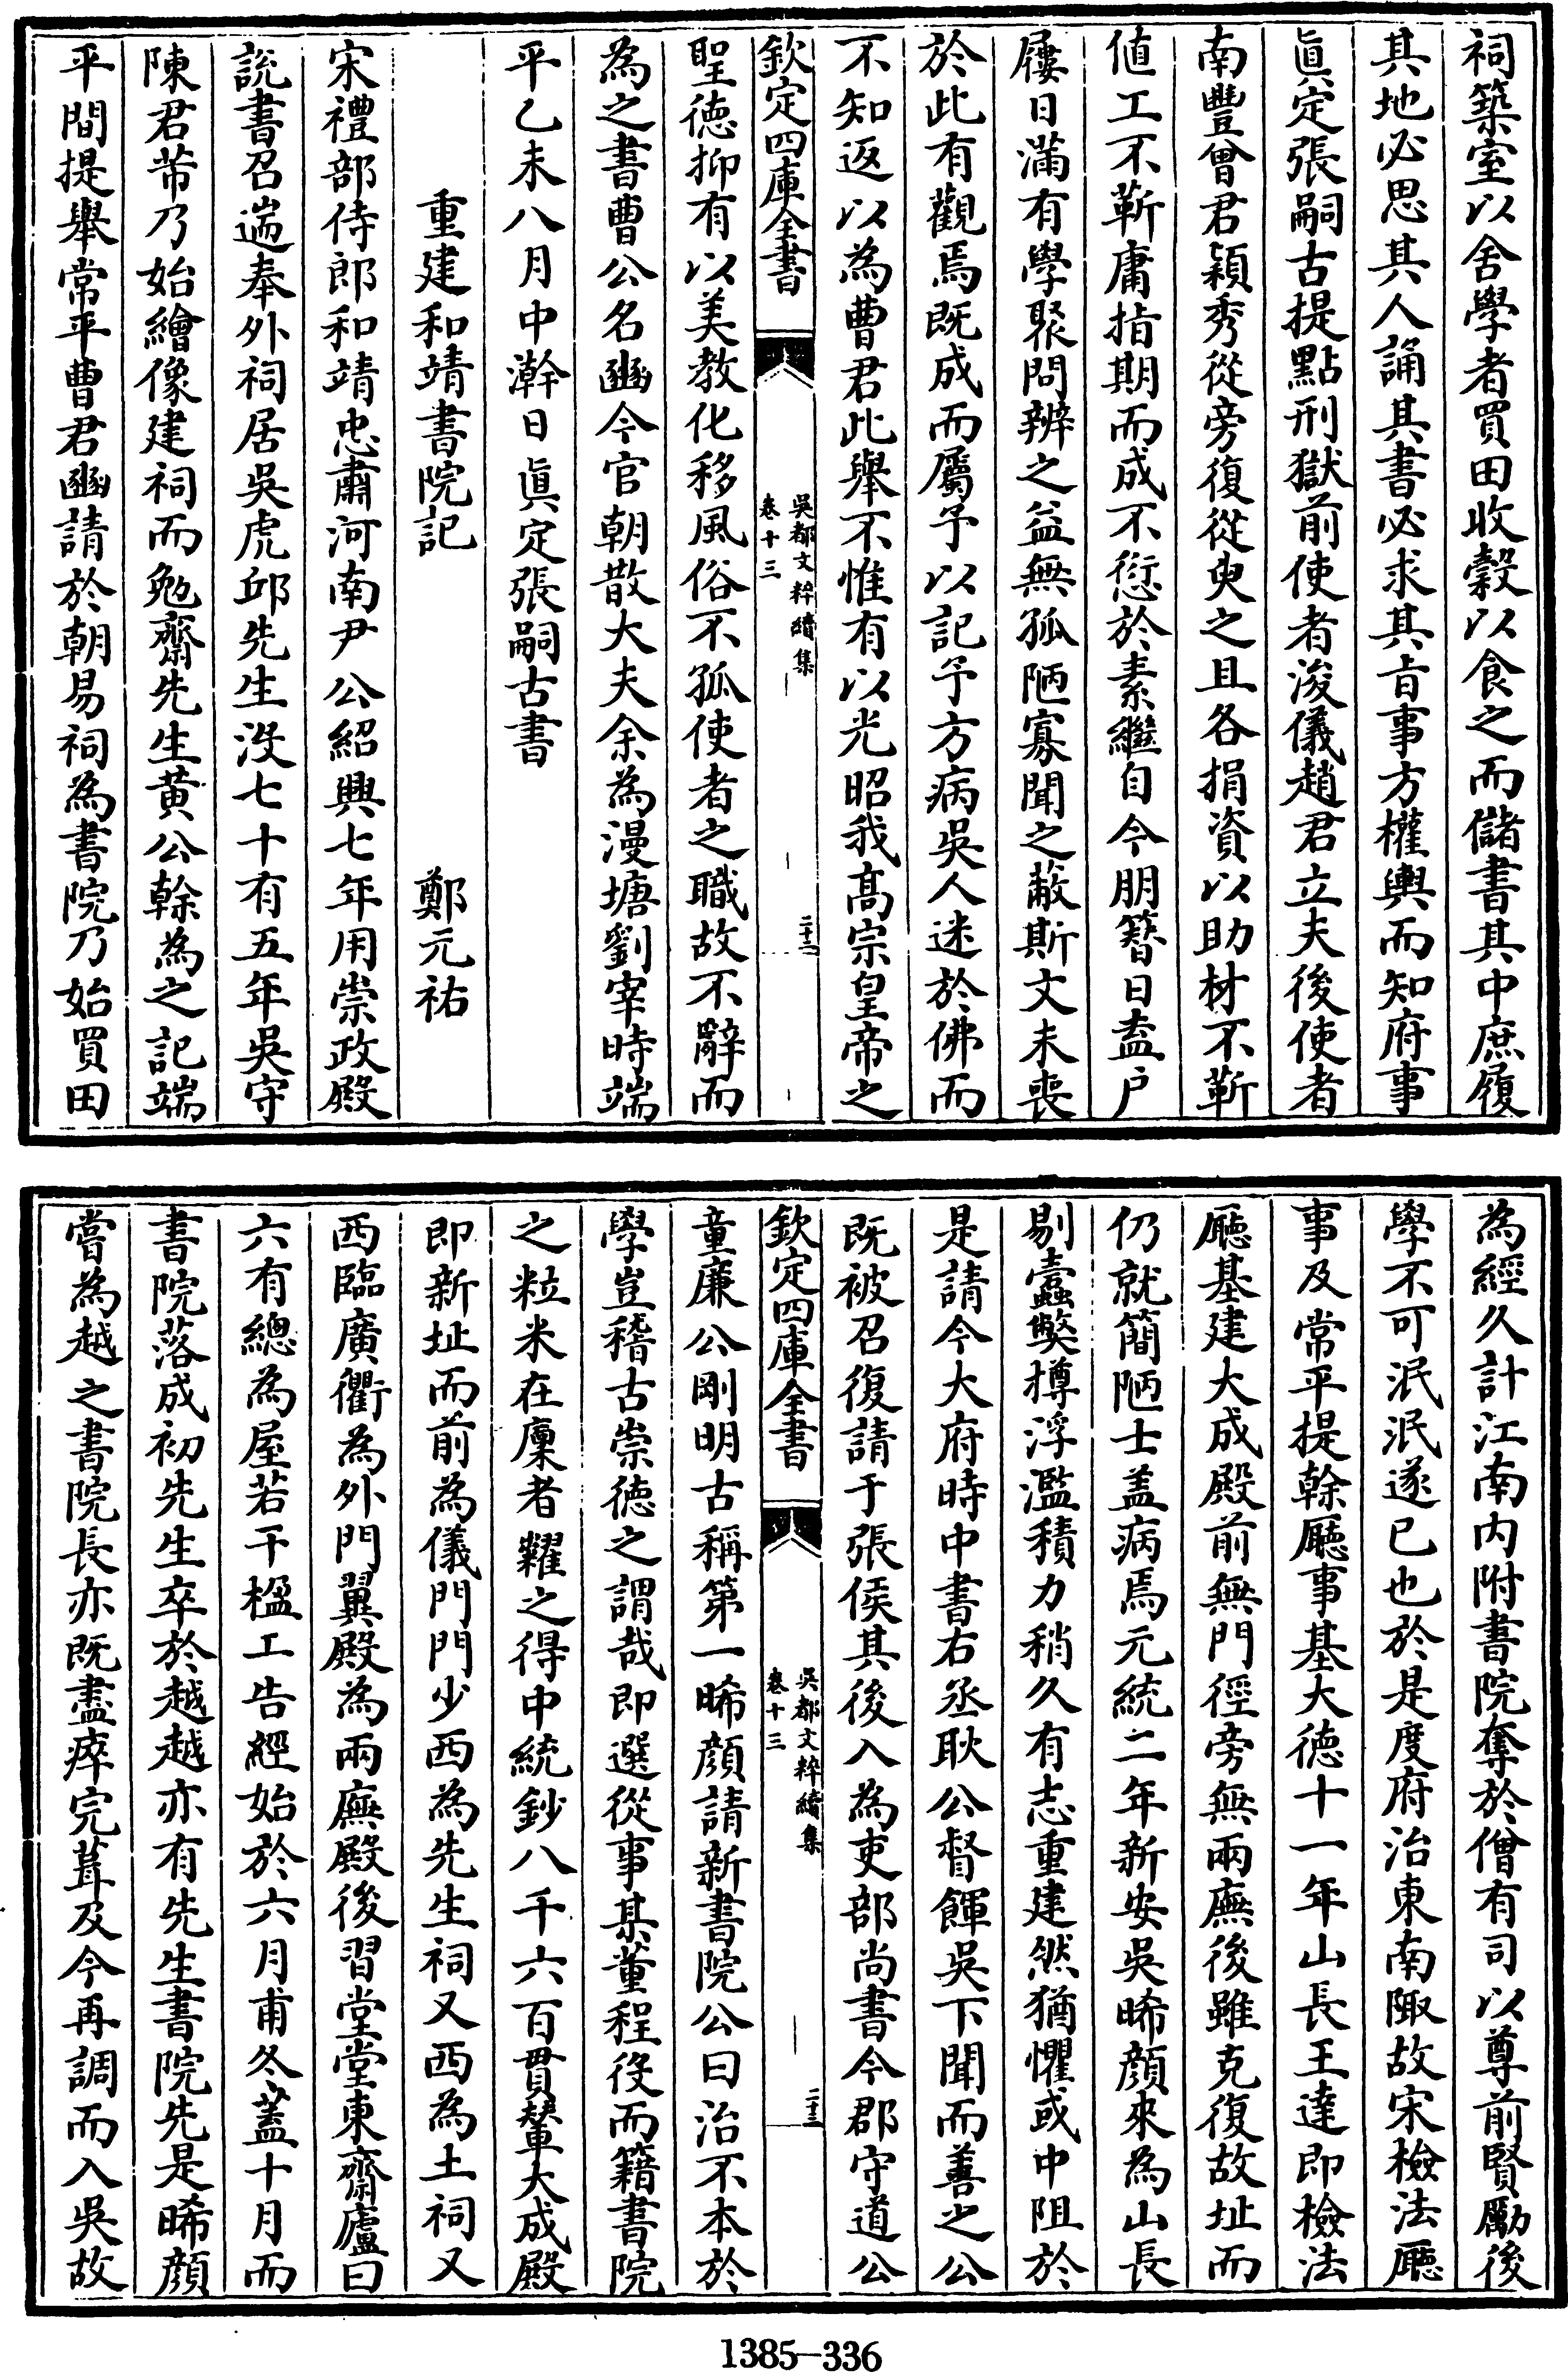 祠築室以舍學者買田收穀以食之而儲書其中庶履
其地必思其人誦其書必求其㫖事方權輿而知府事
眞定張嗣古提點刑獄前使者浚儀趙君立夫後使者
南豐曾君潁秀從旁復從臾之且各捐資以助材不靳
値工不靳庸指期而成不愆於素繼自今朋簪日盍户
屨日滿有學聚問辨之益無孤陋寡聞之蔽斯文未喪
於此有觀焉既成而屬予以記予方病吳人迷於佛而
不知返以為曹君此舉不惟有以光昭我高宗皇帝之
欽定四庫全書
吳都文粹續集
卷十三
二十二
聖徳抑有以美教化移風俗不孤使者之職故不辭而
為之書曹公名豳今官朝散大夫余為漫塘劉宰時端
平乙未八月中澣日眞定張嗣古書
重建和靖書院記
鄭元祐
宋禮部侍郎和靖忠肅河南尹公紹興七年用崇政殿
説書召遄奉外祠居吳虎邱先生没七十有五年吳守
陳君芾乃始繪像建祠而勉齋先生黄公榦為之記端
平間提舉常平曹君豳請於朝易祠為書院乃始買田
為經久計江南内附書院奪於僧有司以尊前賢勵後
學不可泯泯遂已也於是度府治東南陬故宋檢法廳
事及常平提榦廳事基大徳十一年山長王達即檢法
廳基建大成殿前無門徑旁無兩廡後雖克復故址而
仍就簡陋士盖病焉元統二年新安吳晞顔來為山長
剔蠧弊撙浮濫積力稍久有志重建然猶懼或中阻於
是請今大府時中書右丞耿公督餫吳下聞而善之公
既被召復請于張侯其後入為吏部尚書今郡守道公
欽定四庫全書
吳都文粹續集
卷十三
二十三
童廉公剛明古稱第一晞顔請新書院公曰治不本於
學豈稽古崇徳之謂哉即選從事某董程役而籍書院
之粒米在廩者糶之得中統鈔八千六百貫輦大成殿
即新址而前為儀門門少西為先生祠又西為土祠又
西臨廣衢為外門翼殿為兩廡殿後習堂堂東齋廬曰
六有總為屋若干楹工告經始於六月甫冬蓋十月而
書院落成初先生卒於越越亦有先生書院先是晞顔
嘗為越之書院長亦既盡瘁完葺及今再調而入吳故
1385—336